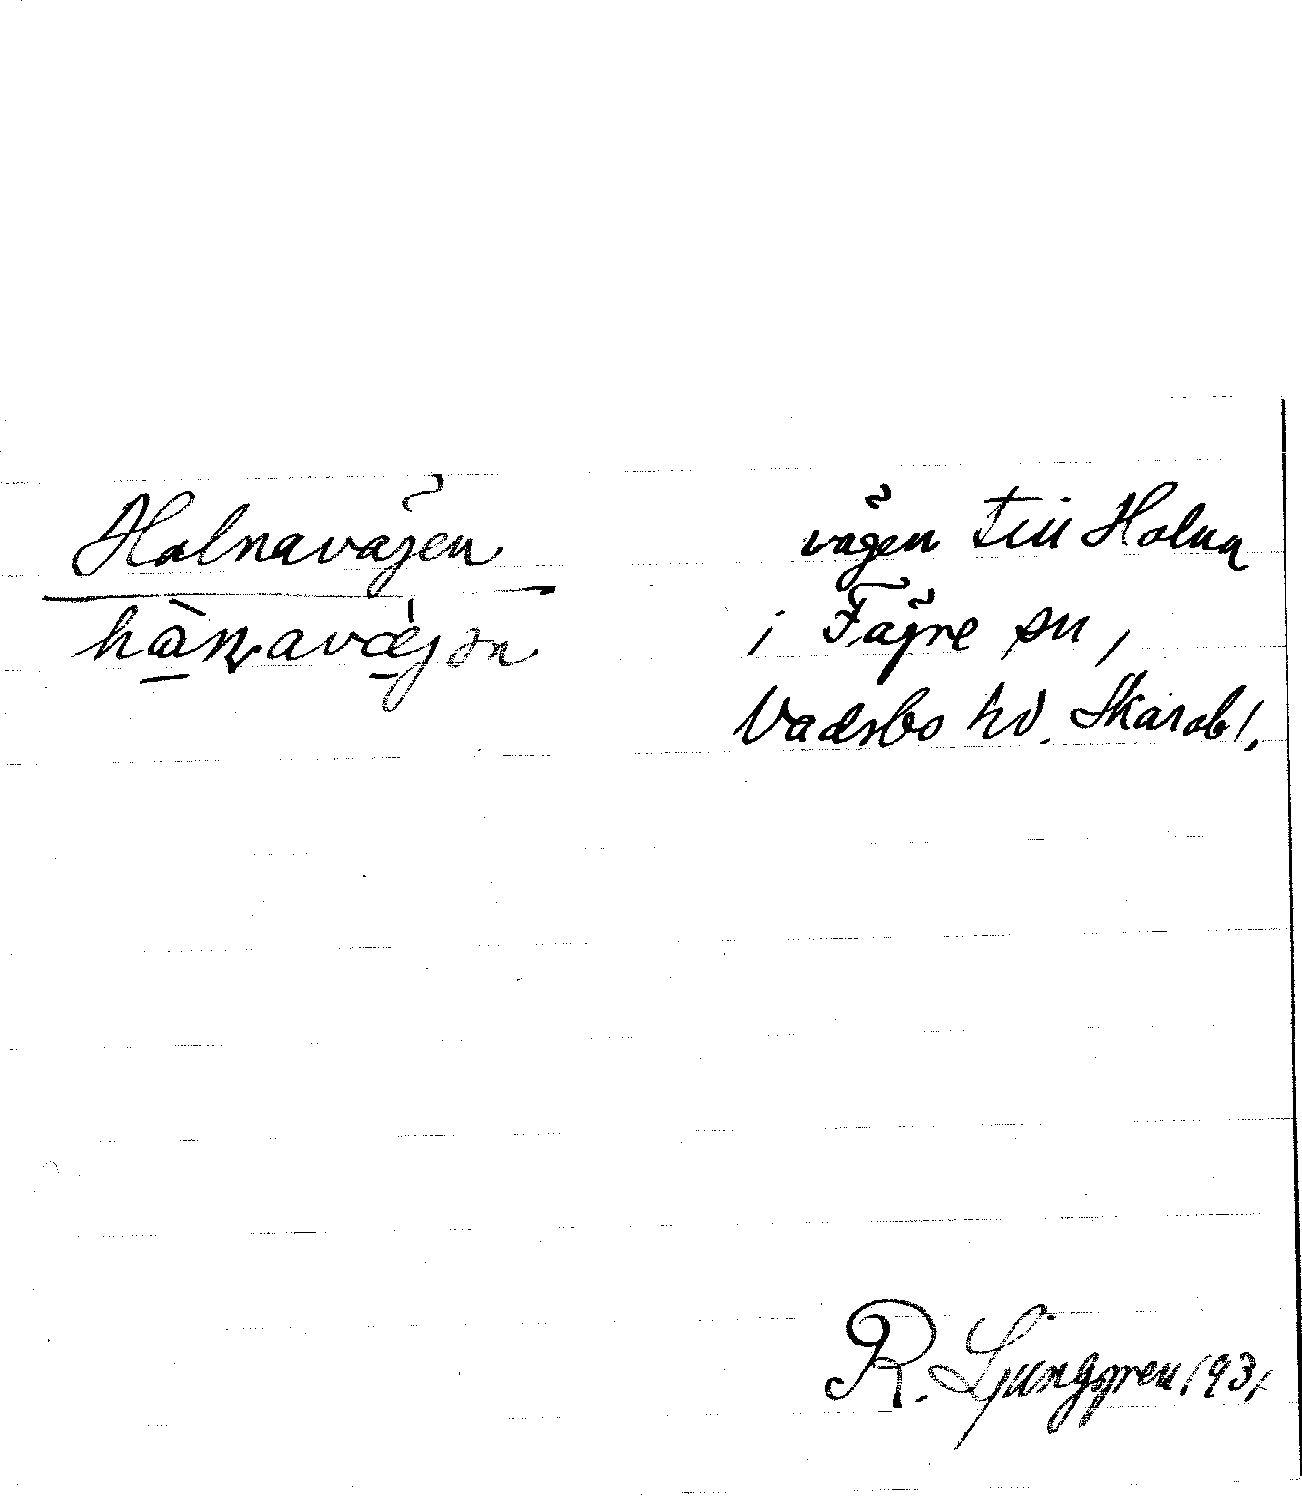 Holnavägen
vägen till Holna
i Fägre sn,
Vadsbo hd. Skarabl.
R. Ljunggren 1931